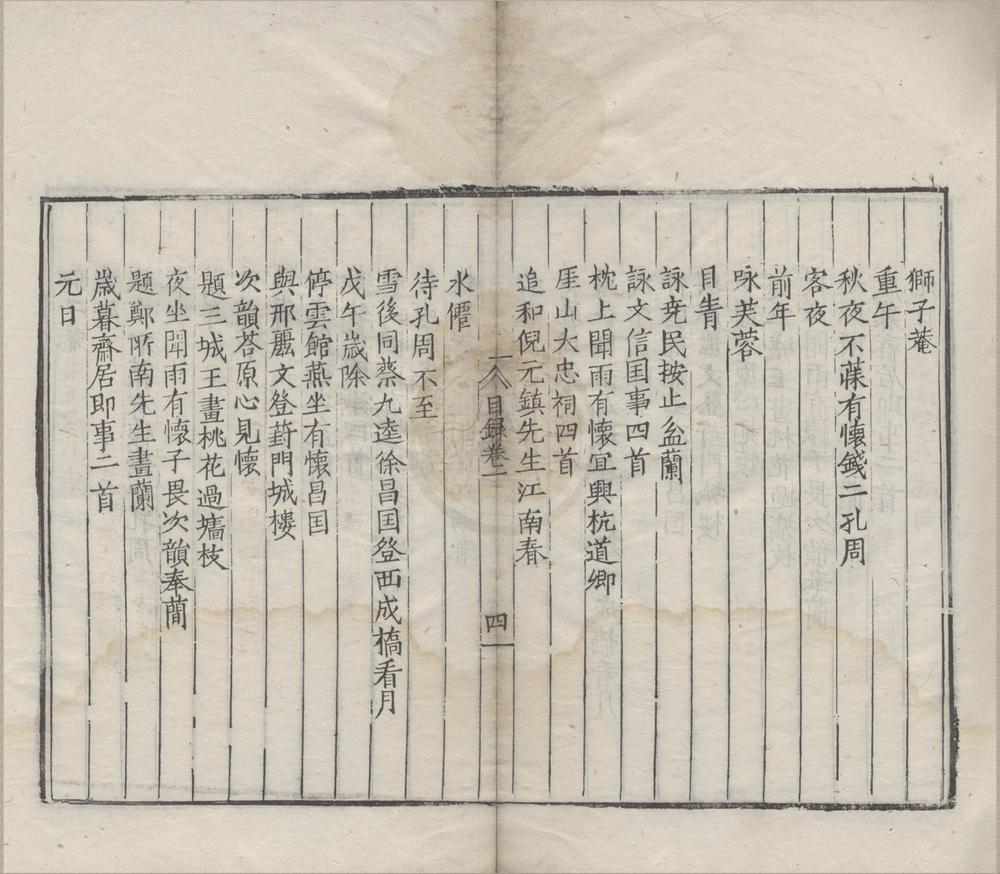 獅子菴
重午
秋夜不寐有懷錢二孔周
客夜
前年
咏芙蓉
目眚
詠堯民按止盆蘭
詠文信国事四首
枕上聞雨有懷宜興杭道卿
厓山大忠祠四首
追和倪元鎮先生江南春
目録卷二
四
水僊
待孔周不至
雪後同蔡九逵徐昌国登西成橋看月
戊午歲除
停雲館燕坐有懷昌国
與邢麗文登葑門城樓
次韻荅原心見懷
題三城王畫桃花過墻枝
夜坐聞雨有懷子畏次韻奉蕳
題鄭所南先生畫蘭
歳暮齋居即事二首
元日